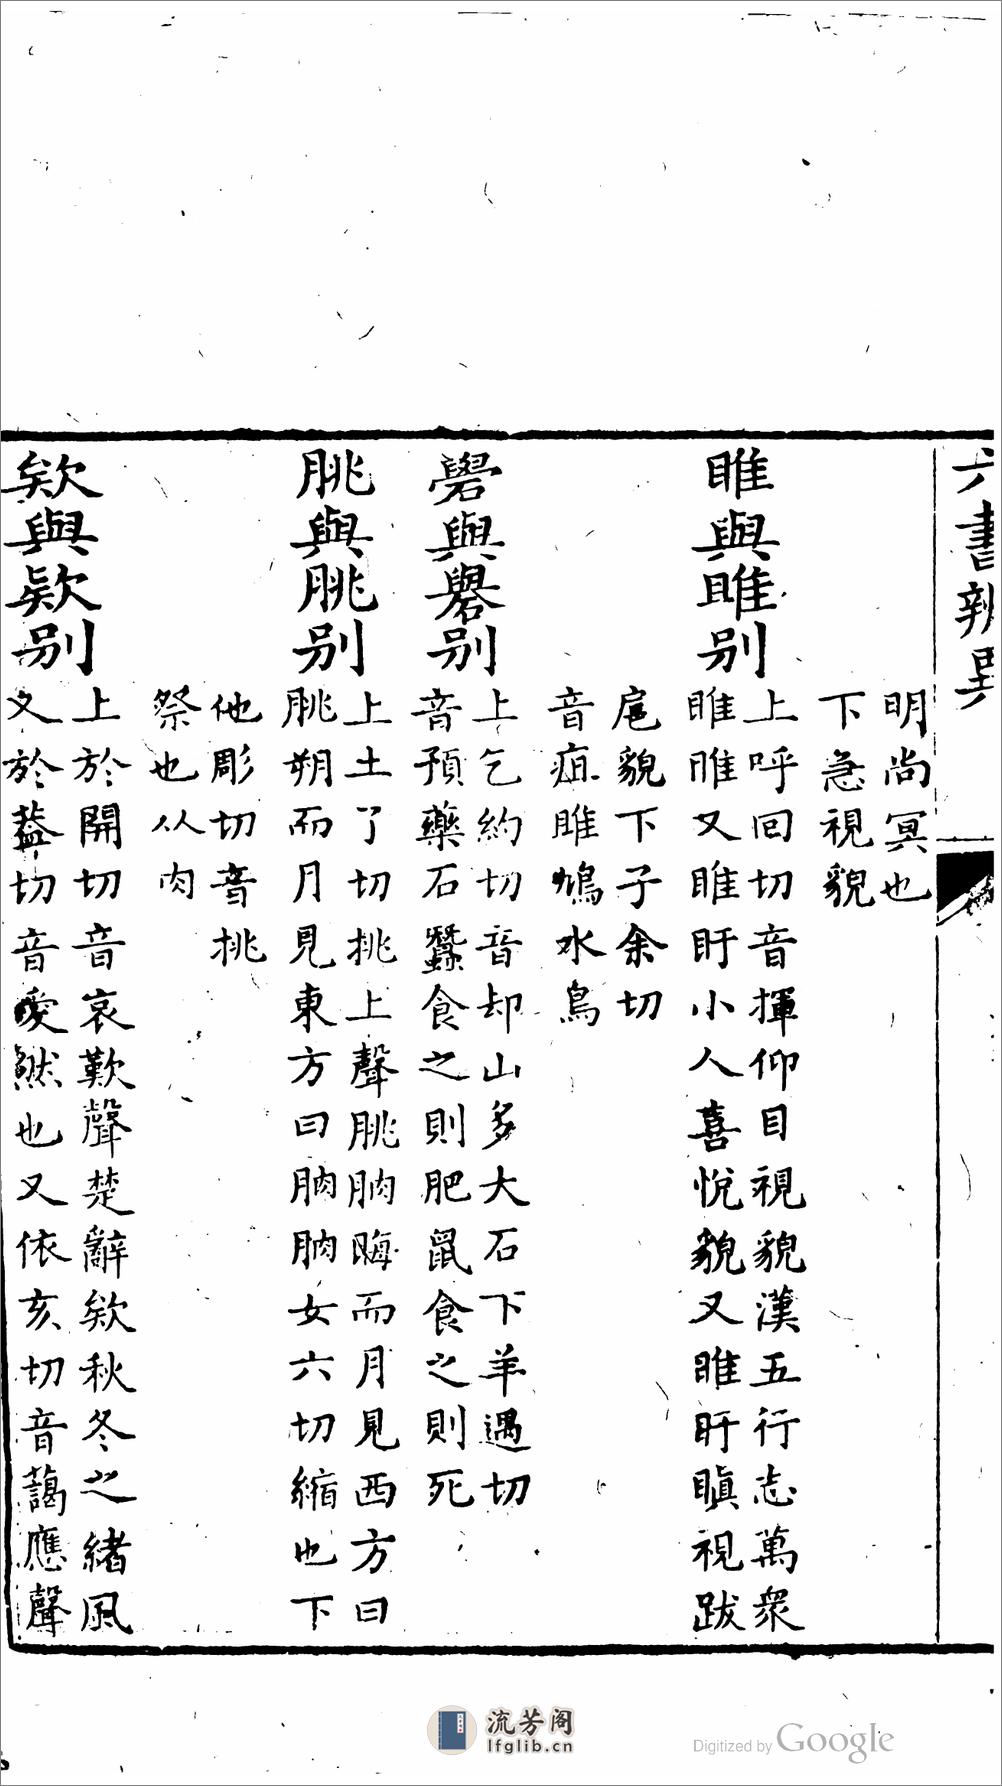 六書辨異
明尚冥也
下急視貌
睢與雎别
上呼回切音揮仰目視貌漢五行志萬衆
睢睢又睢盱小人喜悅貌又睢盱瞋視跋
扈貌下子余切
音疽雎鳩水鳥
礐與礜别
上乞約切音却山多大石下羊遇切
音預藥石蠶食之則肥鼠食之則死
朓與脁别
上土了切挑上聲朓朒晦而月見西方曰
朓朔而月見東方曰朒朒女六切縮也下
他彫切音挑
祭也从肉
欸與款别
上於開切音哀歎聲楚辭欸秋冬之緒風
又於葢切音愛然也又依亥切音藹應聲
流芳阁
lfglib.cn
Digitized by Google